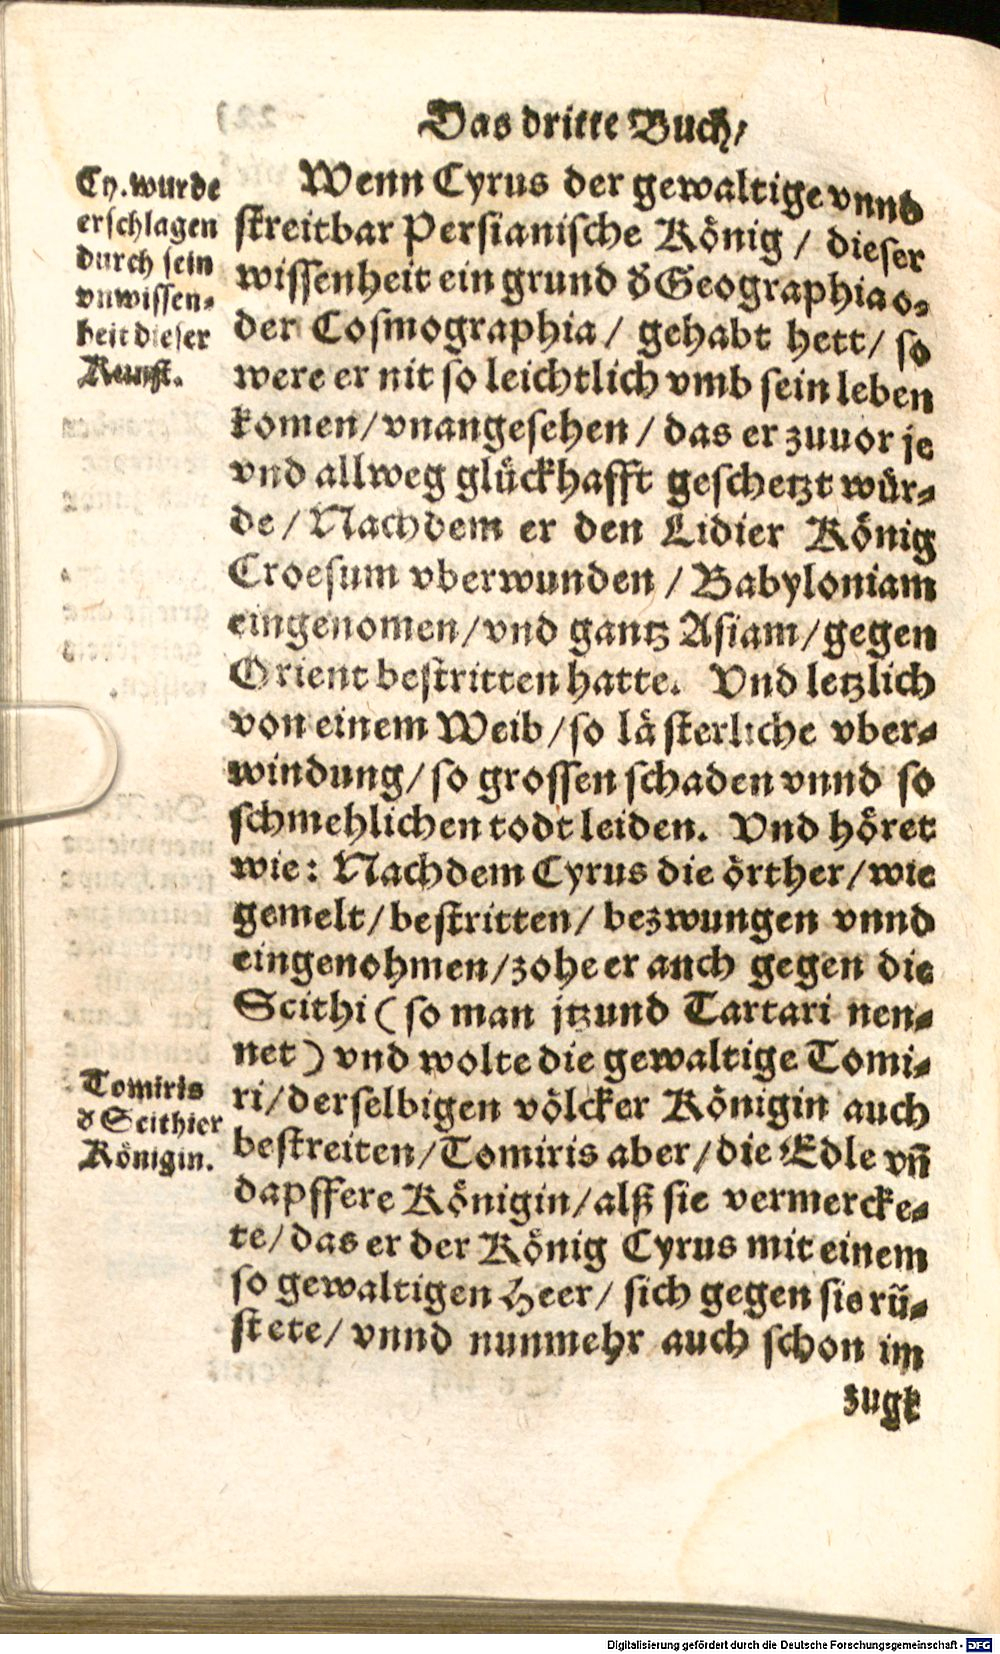 Das dritte Buch/
Cy. wurde
erschlagen
durch sein
vnwissen-
heit dieser
Kunst.
Wenn Cyrus der gewaltige vnnd
streitbar Persianische König / dieser
wissenheit ein grund d̓ Geographia o-
der Cosmographia / gehabt hett / so
were er nit so leichtlich vmb sein leben
komen / vnangesehen / das er zuuor je
vnd allweg glückhafft geschetzt wür-
de / Nachdem er den Lidier König
Croesum vberwunden / Babyloniam
eingenomen / vnd gantz Asiam / gegen
Orient bestritten hatte. Vnd letzlich
von einem Weib / so lästerliche vber-
windung / so grossen schaden vnnd so
schmehlichen todt leiden. Vnd höret
wie: Nachdem Cyrus die örther / wie
gemelt / bestritten / bezwungen vnnd
eingenohmen / zohe er auch gegen die
Scithi ( so man jtzund Tartari nen-
net ) vnd wolte die gewaltige Tomi-
ri / derselbigen völcker Königin auch
bestreiten / Tomiris aber / die Edle vn̄
dapffere Königin / alß sie vermercke-
te / das er der König Cyrus mit einem
so gewaltigen Heer / sich gegen sie rü-
stete / vnnd nunmehr auch schon im
zugk
Tomiris
d̓ Scithier
Königin.
Digitalisierung gefördert durch die Deutsche Forschungsgemeinschaft - DFG